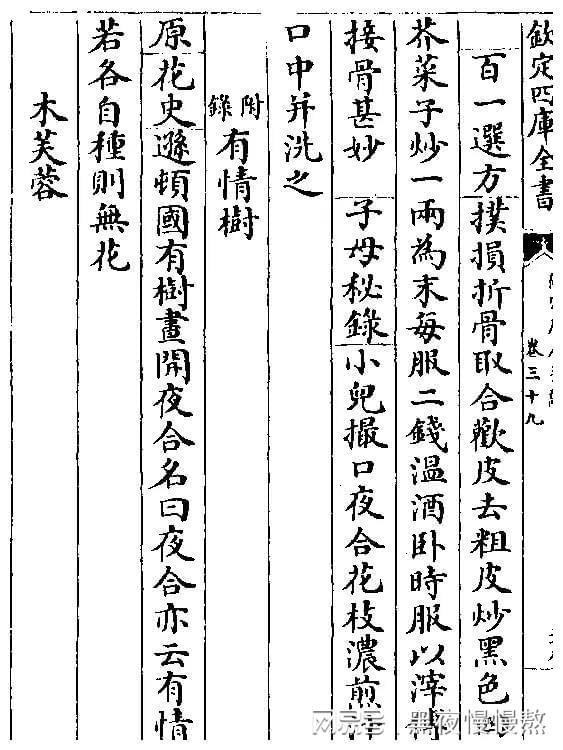 欽定四庫全書
卷三十九
百一選方撲損折骨取合歡皮去粗皮炒黑色
芥菜子炒一兩為末每服二錢溫酒臥時服以滓傅
接骨甚妙 子母秘錄小兒撮口夜合花枝濃煎汁
口中并洗之
附錄有情樹
原花史遜頓國有樹晝開夜合名曰夜合亦云有情
若各自種則無花
木芙蓉
搜狐号@黑夜慢慢熬